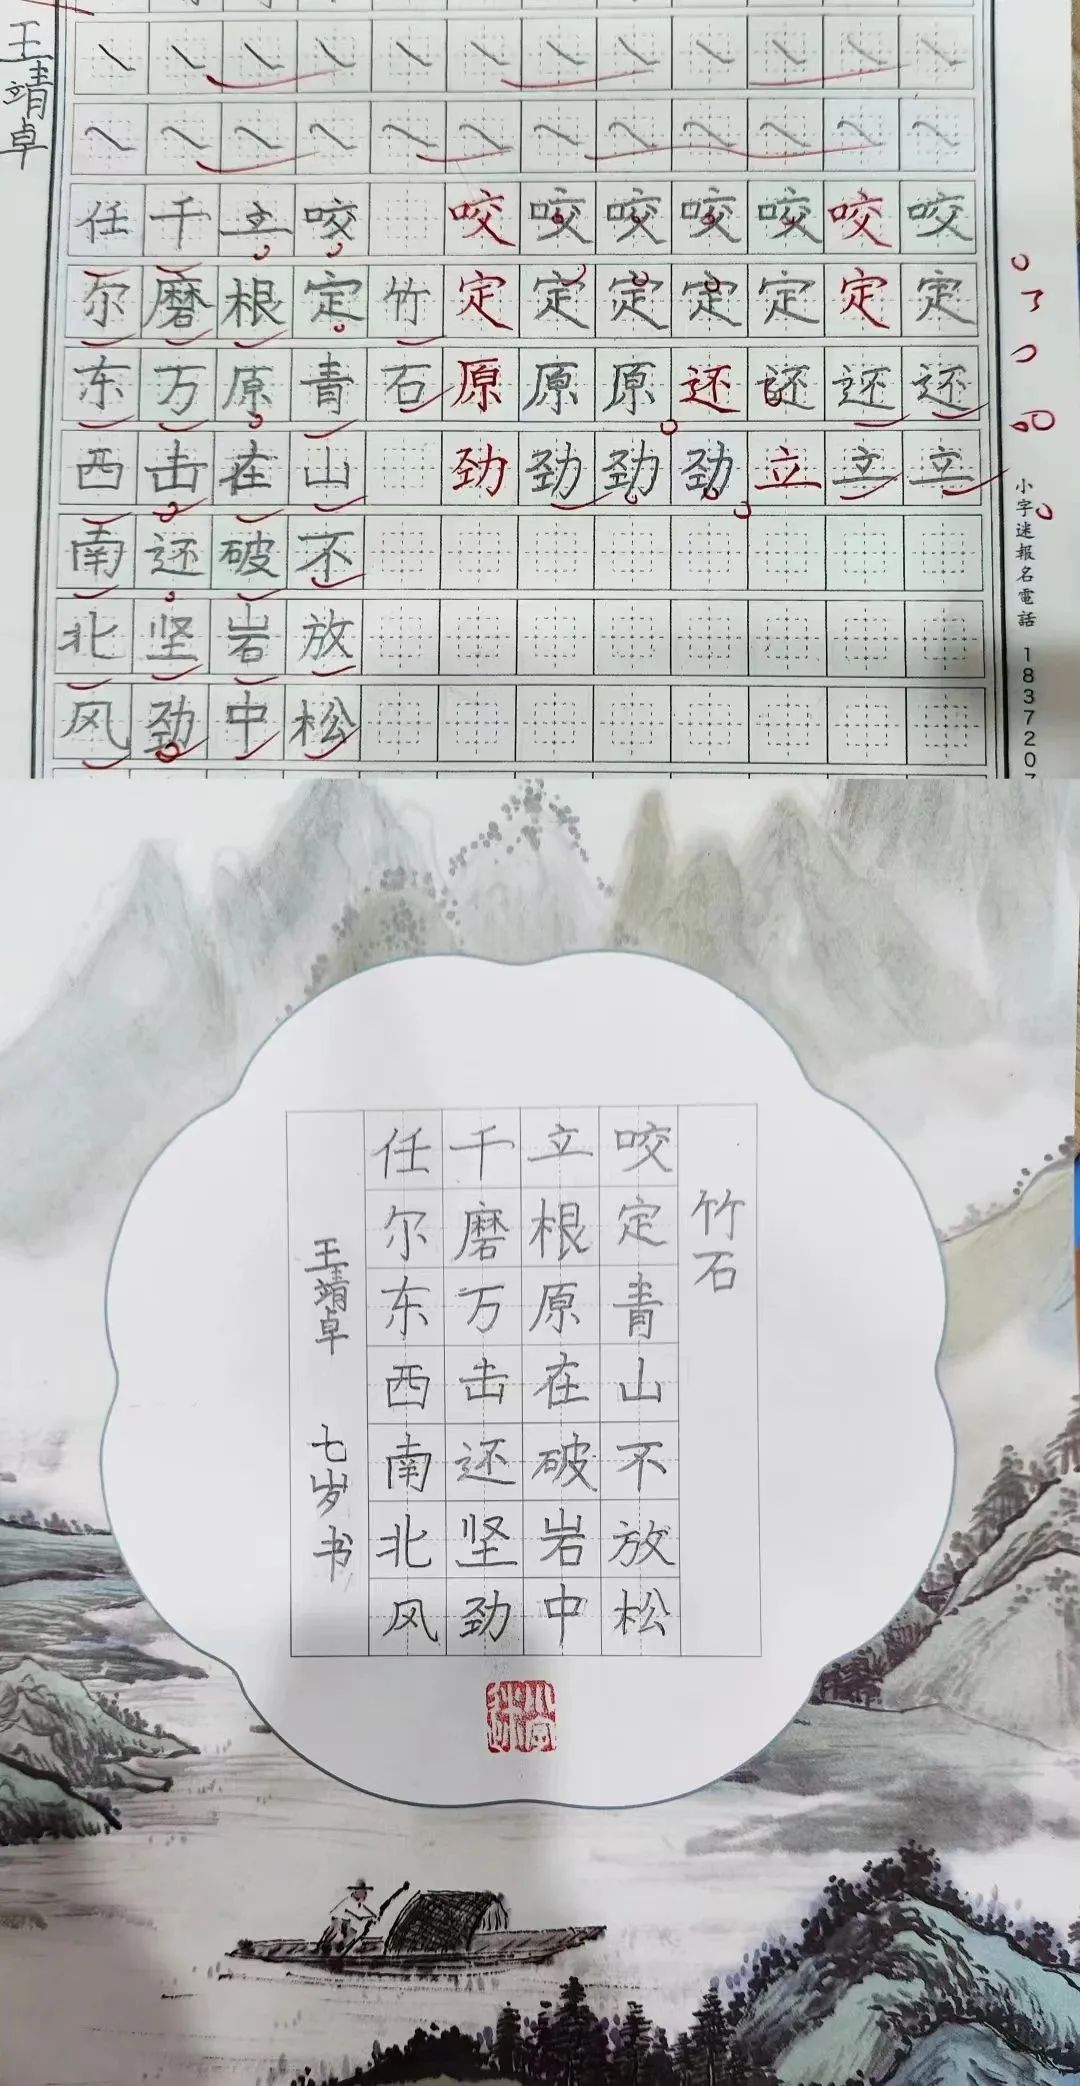 王靖卓
竹石
咬定青山不放松
立根原在破岩中
千磨万击还坚劲
任尔东西南北风
咬咬咬咬咬咬咬
定定定定定定定
原原原还还还还
劲劲劲劲立立立
小字迷報名電話 183720
竹石
咬定青山不放松
立根原在破岩中
千磨万击还坚劲
任尔东西南北风
王靖卓 七岁书
小字迷